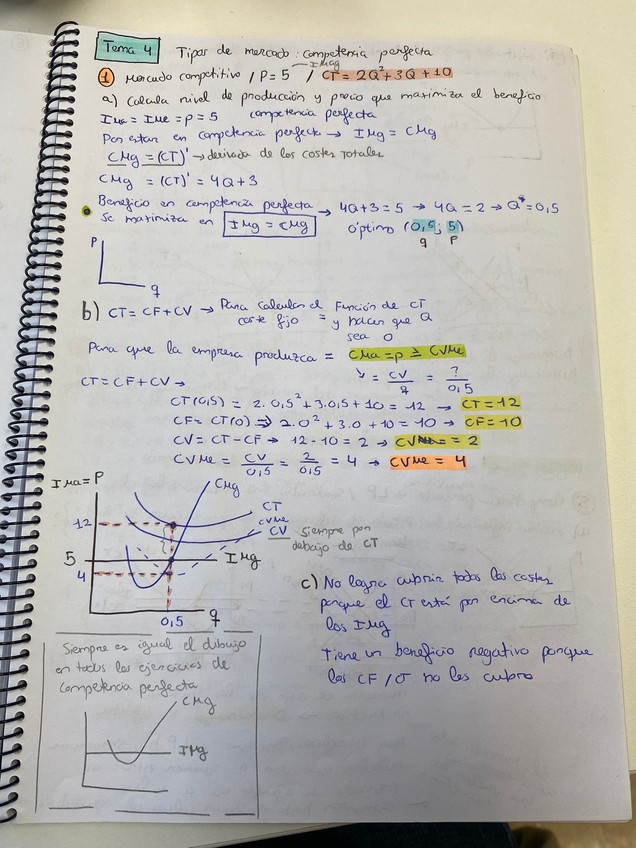 Tema 4 Tipos de mercado: competencia perfecta
① Mercado competitivo / P = 5 / CT = 2Q²+3Q+10
IMag
a) Calcula nivel de producción y precio que maximiza el beneficio
IMa = IMe = p = 5 competencia perfecta
Por estar en competencia perfecta → IMg = CMg
CMg = (CT)' → derivada de los costes totales
CMg = (CT)' = 4Q+3
Beneficio en competencia perfecta → 4Q+3 = 5 → 4Q = 2 → Q* = 0,5
se maximiza en IMg = CMg óptimo (0,5; 5)
q P
P
q
b) CT = CF + CV → Para calcular el coste fijo = Función de CT y hacer que Q sea 0
Para que la empresa produzca = CMa = p ≥ CVMe
↘ = CV/q = ?/0,5
CT = CF + CV →
CT(0,5) = 2·0,5² + 3·0,5 + 10 = 12 → CT = 12
CF = CT(0) ⇒ 2·0² + 3·0 + 10 = 10 → CF = 10
CV = CT - CF → 12 - 10 = 2 → CV = 2
CVMe = CV/0,5 = 2/0,5 = 4 → CVMe = 4
IMa = P
CMg
CT
12
CVMe
CV Siempre por debajo de CT
5 IMg
4
0,5 q
c) No logra cubrir todos los costes
porque el CT está por encima de
los IMg
Tiene un beneficio negativo porque
los CF no los cubro
Siempre es igual el dibujo
en todos los ejercicios de
competencia perfecta
CMg
IMg